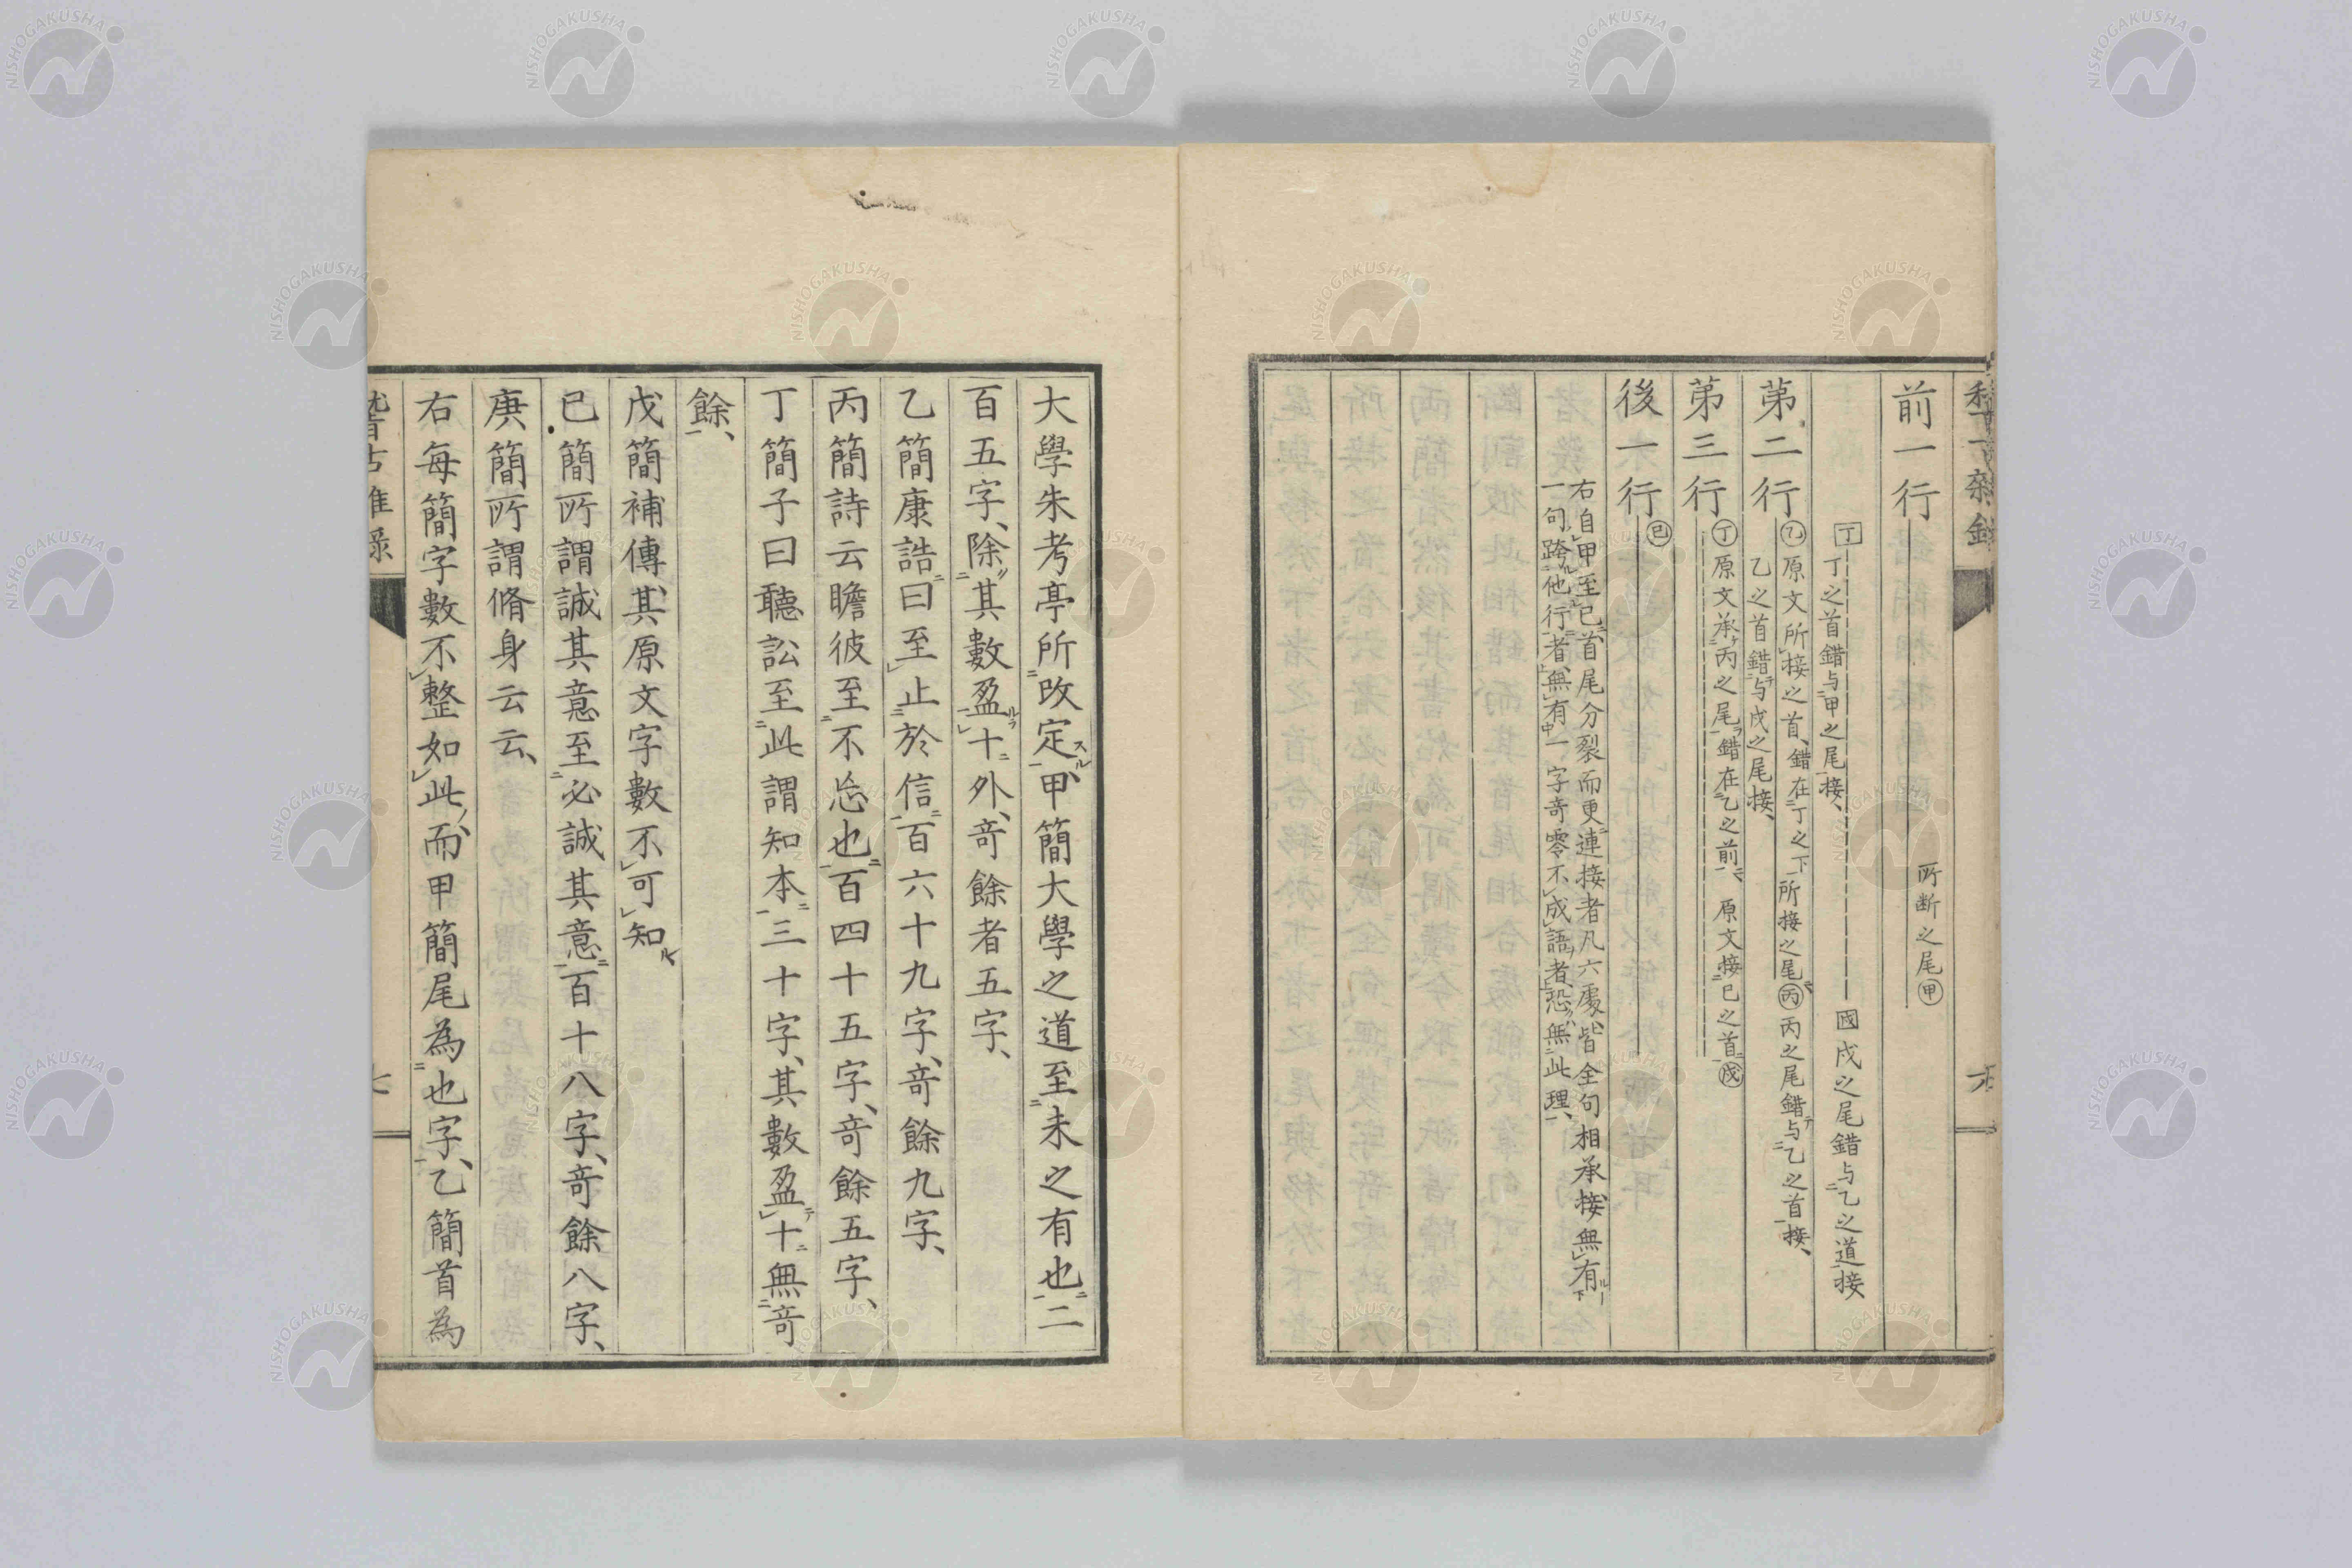 前一行 所断之尾甲
丁 丁之首錯与甲之尾接、 國戊之尾錯与乙之道接
苐二行 乙原文所接之首、錯在丁之下 所接之尾丙丙之尾錯与乙之首接、
乙之首錯与戊之尾接、
苐三行 丁原文承丙之尾錯在乙之前、 原文接已之首戊
後一行 已
右自甲至已首尾分裂而更連接者凡六處皆全句相承接無有
一句跨他行者、無有一字竒零不成語者、恐無此理、
大學朱考亭所改定、甲簡大學之道至未之有也二
百五字、除其數盈十外、竒餘者五字、
乙簡康誥曰至止於信百六十九字、竒餘九字、
丙簡詩云瞻彼至不忘也百四十五字、竒餘五字、
丁簡子曰聽訟至此謂知本三十字、其數盈十無竒
餘、
戊簡補傳、其原文字數不可知
已簡所謂誠其意至必誠其意百十八字、竒餘八字、
庚簡所謂脩身云云、
右每簡字數不整如此、而甲簡尾為也字、乙簡首為
NISHOGAKUSHA